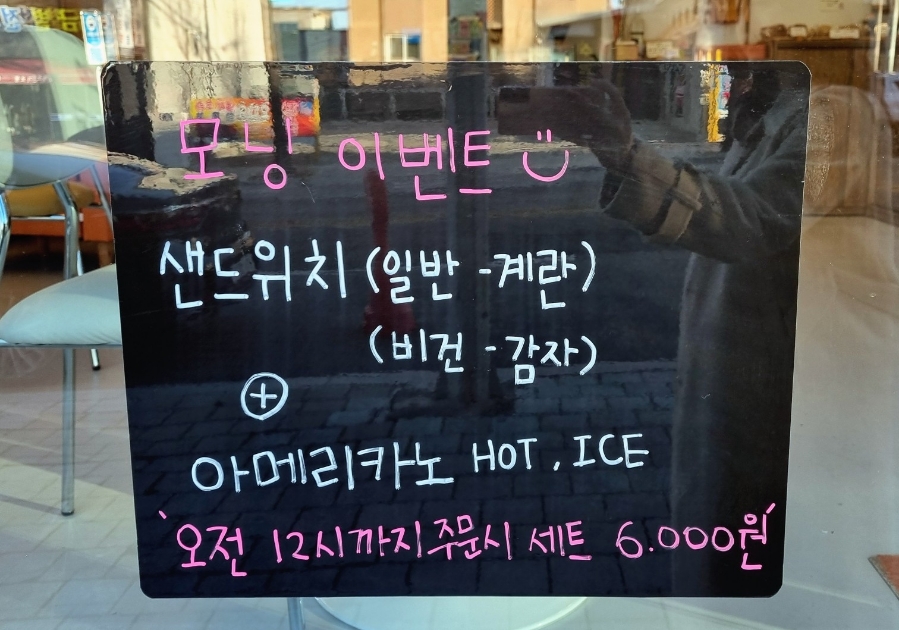 모닝 이벤트
샌드위치 (일반 - 계란)
(비건 - 감자)
+
아메리카노 HOT. ICE
'오전 12시까지 주문시 세트 6.000원'